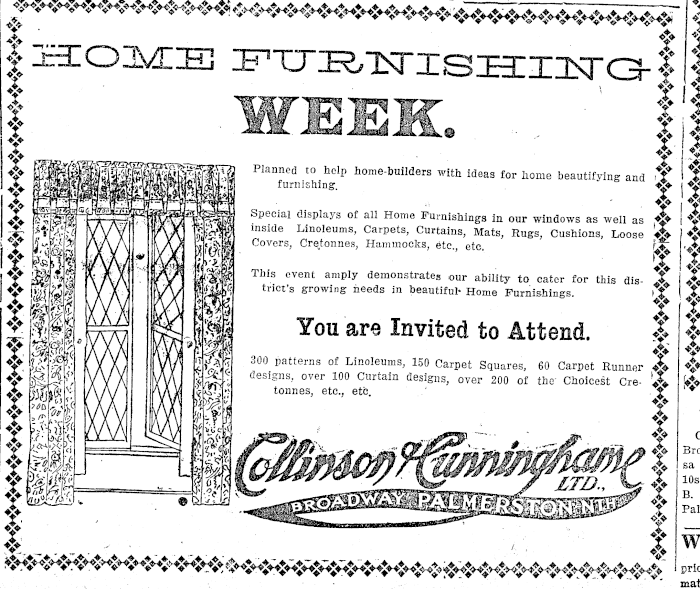 HOME FURNISHING
WEEK.
Planned to help home-builders with ideas for home beautifying and
furnishing.
Special displays of all Home Furnishings in our windows as well as
inside Linoleums, Carpets, Curtains, Mats, Rugs, Cushions, Loose
Covers, Cretonnes, Hammocks, etc., etc.
This event amply demonstrates our ability to cater for this dis-
trict's growing needs in beautiful Home Furnishings.
You are Invited to Attend.
300 patterns of Linoleums, 150 Carpet Squares, 60 Carpet Runner
designs, over 100 Curtain designs, over 200 of the Choicest Cre-
tonnes, etc., etc.
Collinson & Cunninghame
LTD.,
BROADWAY, PALMERSTON NTH
Bro
sa
10s
B.
Pal
W
pric
mat